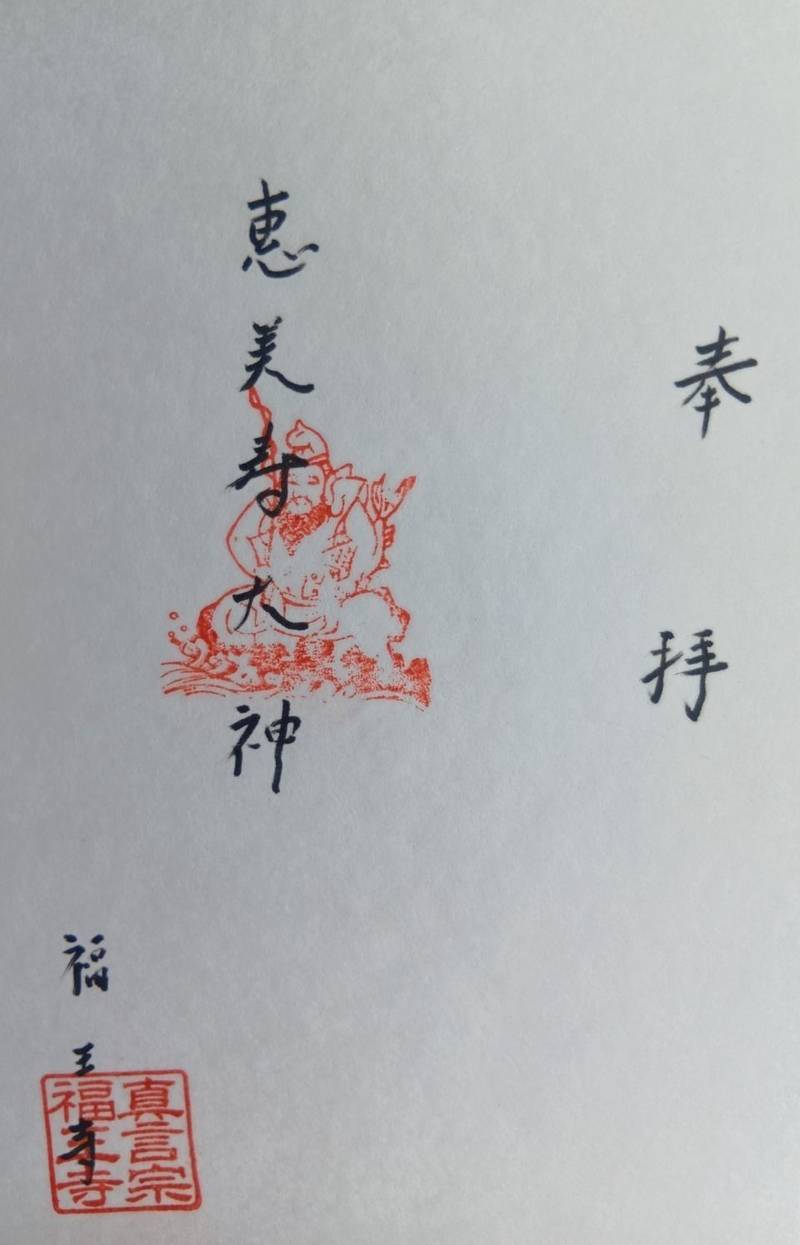 奉拝
恵美寿大神
福王寺
真言宗
福王寺